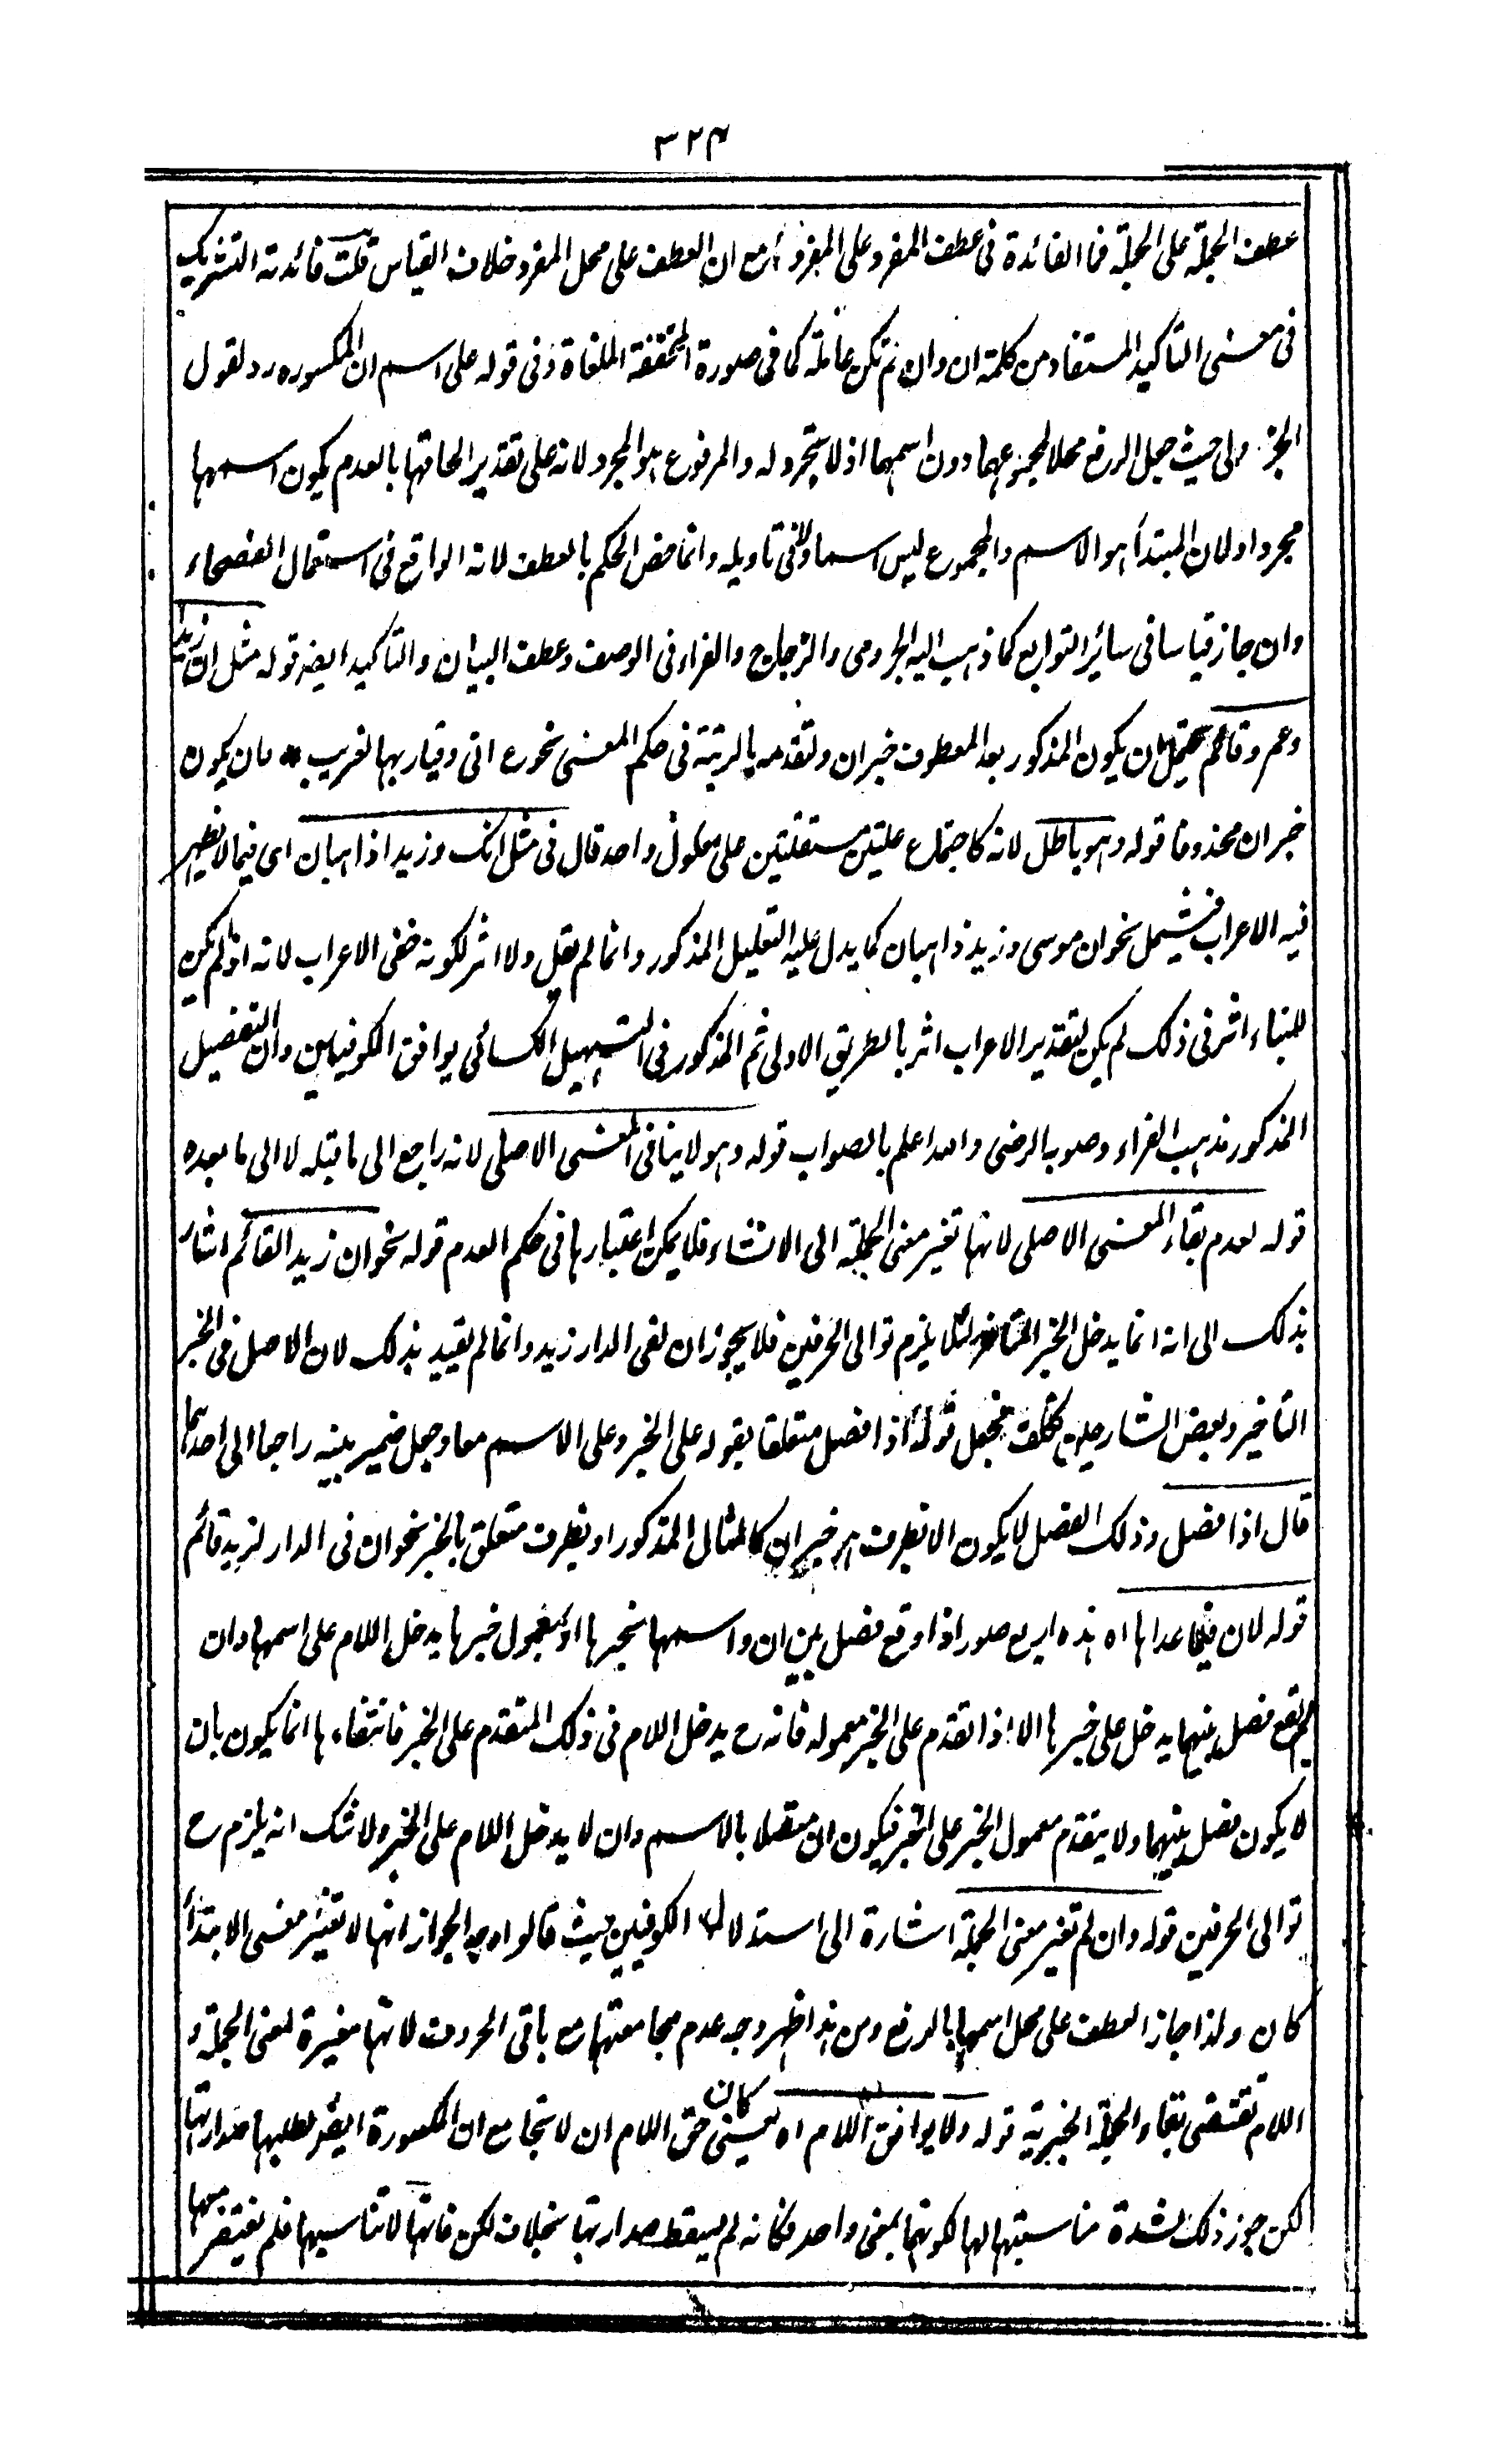 ٣٢٤
عطف الجملة على الجملة فما الفائدة فى عطف المفرد على المفرد مع ان العطف على محل المفرد خلاف القياس قلت فائدته التشريك
فى معنى التاكيد المستفاد من كلمة ان وان لم تكن عاملة كما فى صورة المخففة الملغاة وفى قوله على اسم ان المكسوره رد لقول
الجزولى حيث جعل الرفع محلا لمجموعهما دون اسمها اذ لا تجرد له والمرفوع هو المجرد لانه على تقدير الحاقها بالعدم يكون اسمها
مجردا ولان المبتدأ هو الاسم والمجموع ليس اسما ولا فى تاويله وانما خص الحكم بالعطف لانه الواقع فى استعمال الفصحاء
وان جاز قياسا فى سائر التوابع كما ذهب اليه الجرومى والزجاج والفراء فى الوصف وعطف البيان والتاكيد ايضه قوله مثل ان زيدا
وعمرو قائم يحتمل ان يكون المذكور بعد المعطوف خبر ان وتقدمه بالرتبة فى حكم المعنى نحو ع انى وقيار بها لغريب * بان يكون
خبر ان محذوفا قوله وهو باطل لانه كاجتماع علتين مستقلتين على معلول واحد قال فى مثل انك وزيد اذاهبان اى فيما لا يظهر
فيه الاعراب فيشمل نحو ان موسى وزيد ذاهبان كما يدل عليه التعليل المذكور وانما لم يقل ولا اثر لكونه خفى الاعراب لانه اذ لم يكن
للبناء اثر فى ذلك لم يكن لتقدير الاعراب اثر بالطريق الاولى ثم المذكور فى التسهيل الكسائى يوافق الكوفيين وان التفصيل
المذكور مذهب الفراء وصوبه الرضى والله اعلم بالصواب قوله وهو لا ينافى المعنى الاصلى لانه راجع الى ما قبله لا الى ما بعده
قوله لعدم بقاء المعنى الاصلى لانها تغير معنى الجملة الى الانشاء فلا يمكن اعتبارها فى حكم العدم قوله نحو ان زيدا لقائم اشار
بذلك الى انه انما يدخل الخبر المتاخر لئلا يلزم توالى الحرفين فلا يجوز ان لفى الدار زيد وانما لم يقيد بذلك لان الاصل فى الخبر
التاخير وبعض الشارحين تكلف فجعل قوله اذا فصل متعلقا بقوله على الخبر وعلى الاسم معا وجعل ضمير بينه راجعا الى احدهما
قال اذا فصل وذلك الفصل لا يكون الا بظرف هو خبر ان كالمثال المذكور او بظرف متعلق بالخبر نحو ان فى الدار لزيد قائم
قوله لان فيما عداها اه هذه اربع صور اذا وقع فصل بين ان واسمها بخبرها او بمعمول خبرها يدخل اللام على اسمها وان
لم يقع فصل بينهما يدخل على خبرها الا اذا تقدم على الخبر معموله فانه ح يدخل اللام فى ذلك المتقدم على الخبر فانتفاءها انما يكون بان
لا يكون فصل بينهما ولا يتقدم معمول الخبر على الخبر فيكون ان متصلا بالاسم وان لا يدخل اللام على الخبر ولا شك انه يلزم ح
توالى الحرفين قوله وان لم تغير معنى الجملة اشارة الى استدلال الكوفيين حيث قالوا وجه الجواز انها لا تغير معنى الابتدأ
كان ولذا جاز العطف على محل اسمها بالرفع ومن هذا ظهر وجه عدم مجامعتها مع باقى الحروف لانها مغيرة لمعنى الجملة و
اللام تقتضى بقاء الجملة الخبرية قوله ولا يوافق اللام اه يعنى كان حق اللام ان لا تجامع ان المكسورة ايضه لطلبها صدارتها
لكن جوز ذلك لشدة مناسبتها لها لكونهما بمعنى واحد فكانه لم يسقط صدارتها بخلاف لكن فانها لا تناسبها فلم يغتفر معها